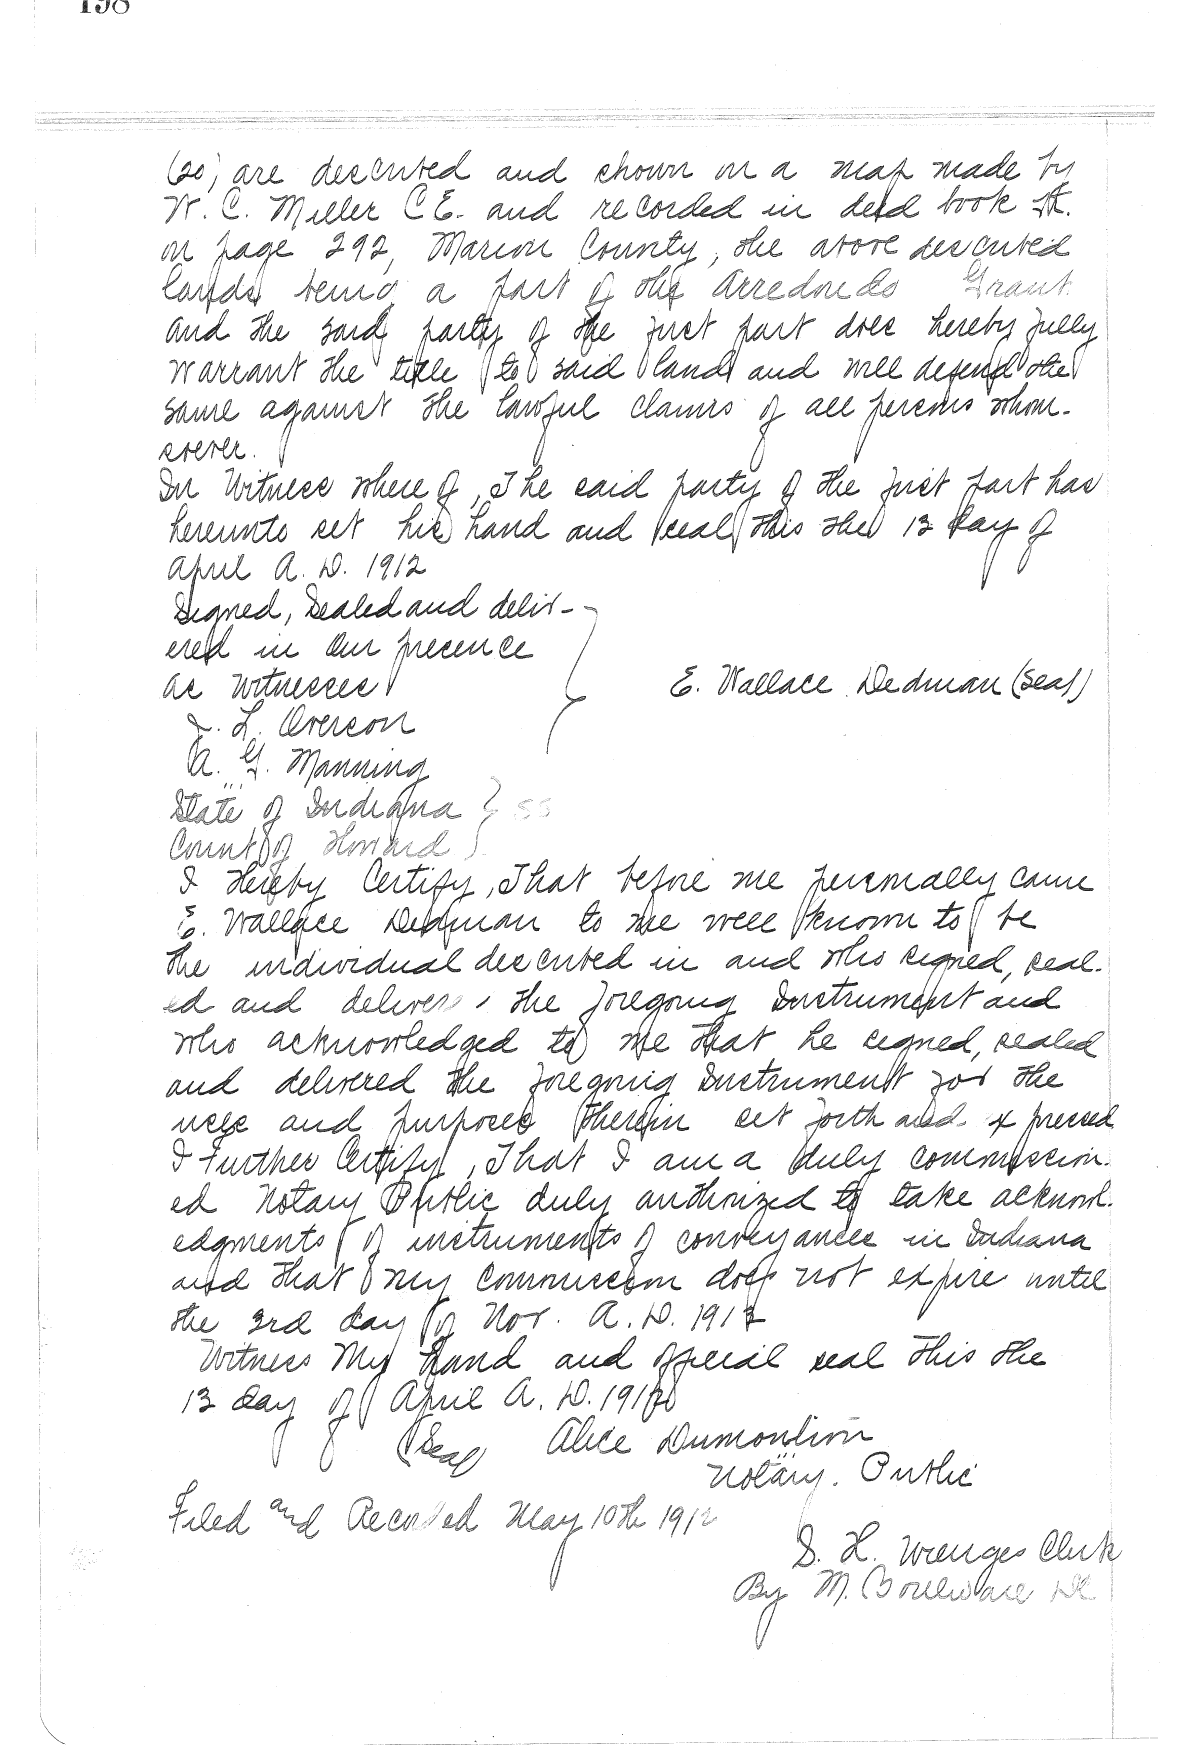 198
(20) are described and shown on a map made by
W. C. Miller C E. and recorded in deed book A.
on page 292, Marion County, the above described
lands being a part of the Arredondo Grant.
And the said party of the first part does hereby fully
warrant the title to said land and will defend the
same against the lawful claims of all persons whom-
soever.
In Witness where of, The said party of the first part has
hereunto set his hand and seal this the 13 day of
April A. D. 1912
Signed, Sealed and deliv-
ered in Our presence
as Witnesses
L. Overson
A. G. Manning
E. Wallace Dedman (Seal)
State of Indiana } SS
County of Howard }
I Hereby Certify, That before me personally came
E. Wallace Dedman to me well known to be
the individual described in and who signed, seal-
ed and deliver the foregoing Instrument and
who acknowledged to me that he signed, sealed
and delivered the foregoing Instrument for the
uses and purposes therein set forth and expressed
I Further Certify, That I am a duly commission-
ed Notary Public duly authorized to take acknowl-
edgments of instruments of conveyances in Indiana
and that My Commission does not expire until
the 3rd day of Nov. A. D. 1913
Witness My hand and official seal this the
13 day of April A. D. 1912
(Seal) Alice Dumoulin
Notary. Public
Filed and Recorded May 10th 1912
S. H. Clerk
By M. Bouleware DC